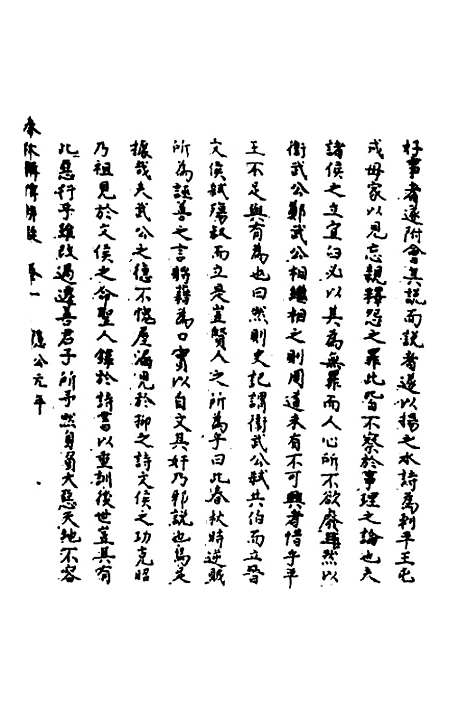 好事者遂附會其説而説者遂以揚之水詩為刺平王屯
戍母家以見忘親釋怨之罪此皆不察於事理之論也夫
諸侯之立宜臼必以其為無罪而人心所不欲廢雖然以
衛武公鄭武公相繼相之則周道未有不可興者惜乎平
王不足與有為也曰然則史記謂衛武公弑共伯而立晉
文侯弑殤叔而立是豈賢人之所為乎曰此春秋時逆賊
所為誣善之言將藉為口實以自文其奸乃邪説也烏足
據哉夫武公之德不愧屋漏見於抑之詩文侯之功克昭
乃祖見於文侯之命聖人錄於詩書以垂訓後世豈其有
此惡行乎雖改過遷善君子所予然身負大惡天地不容
卷一 隱公元年